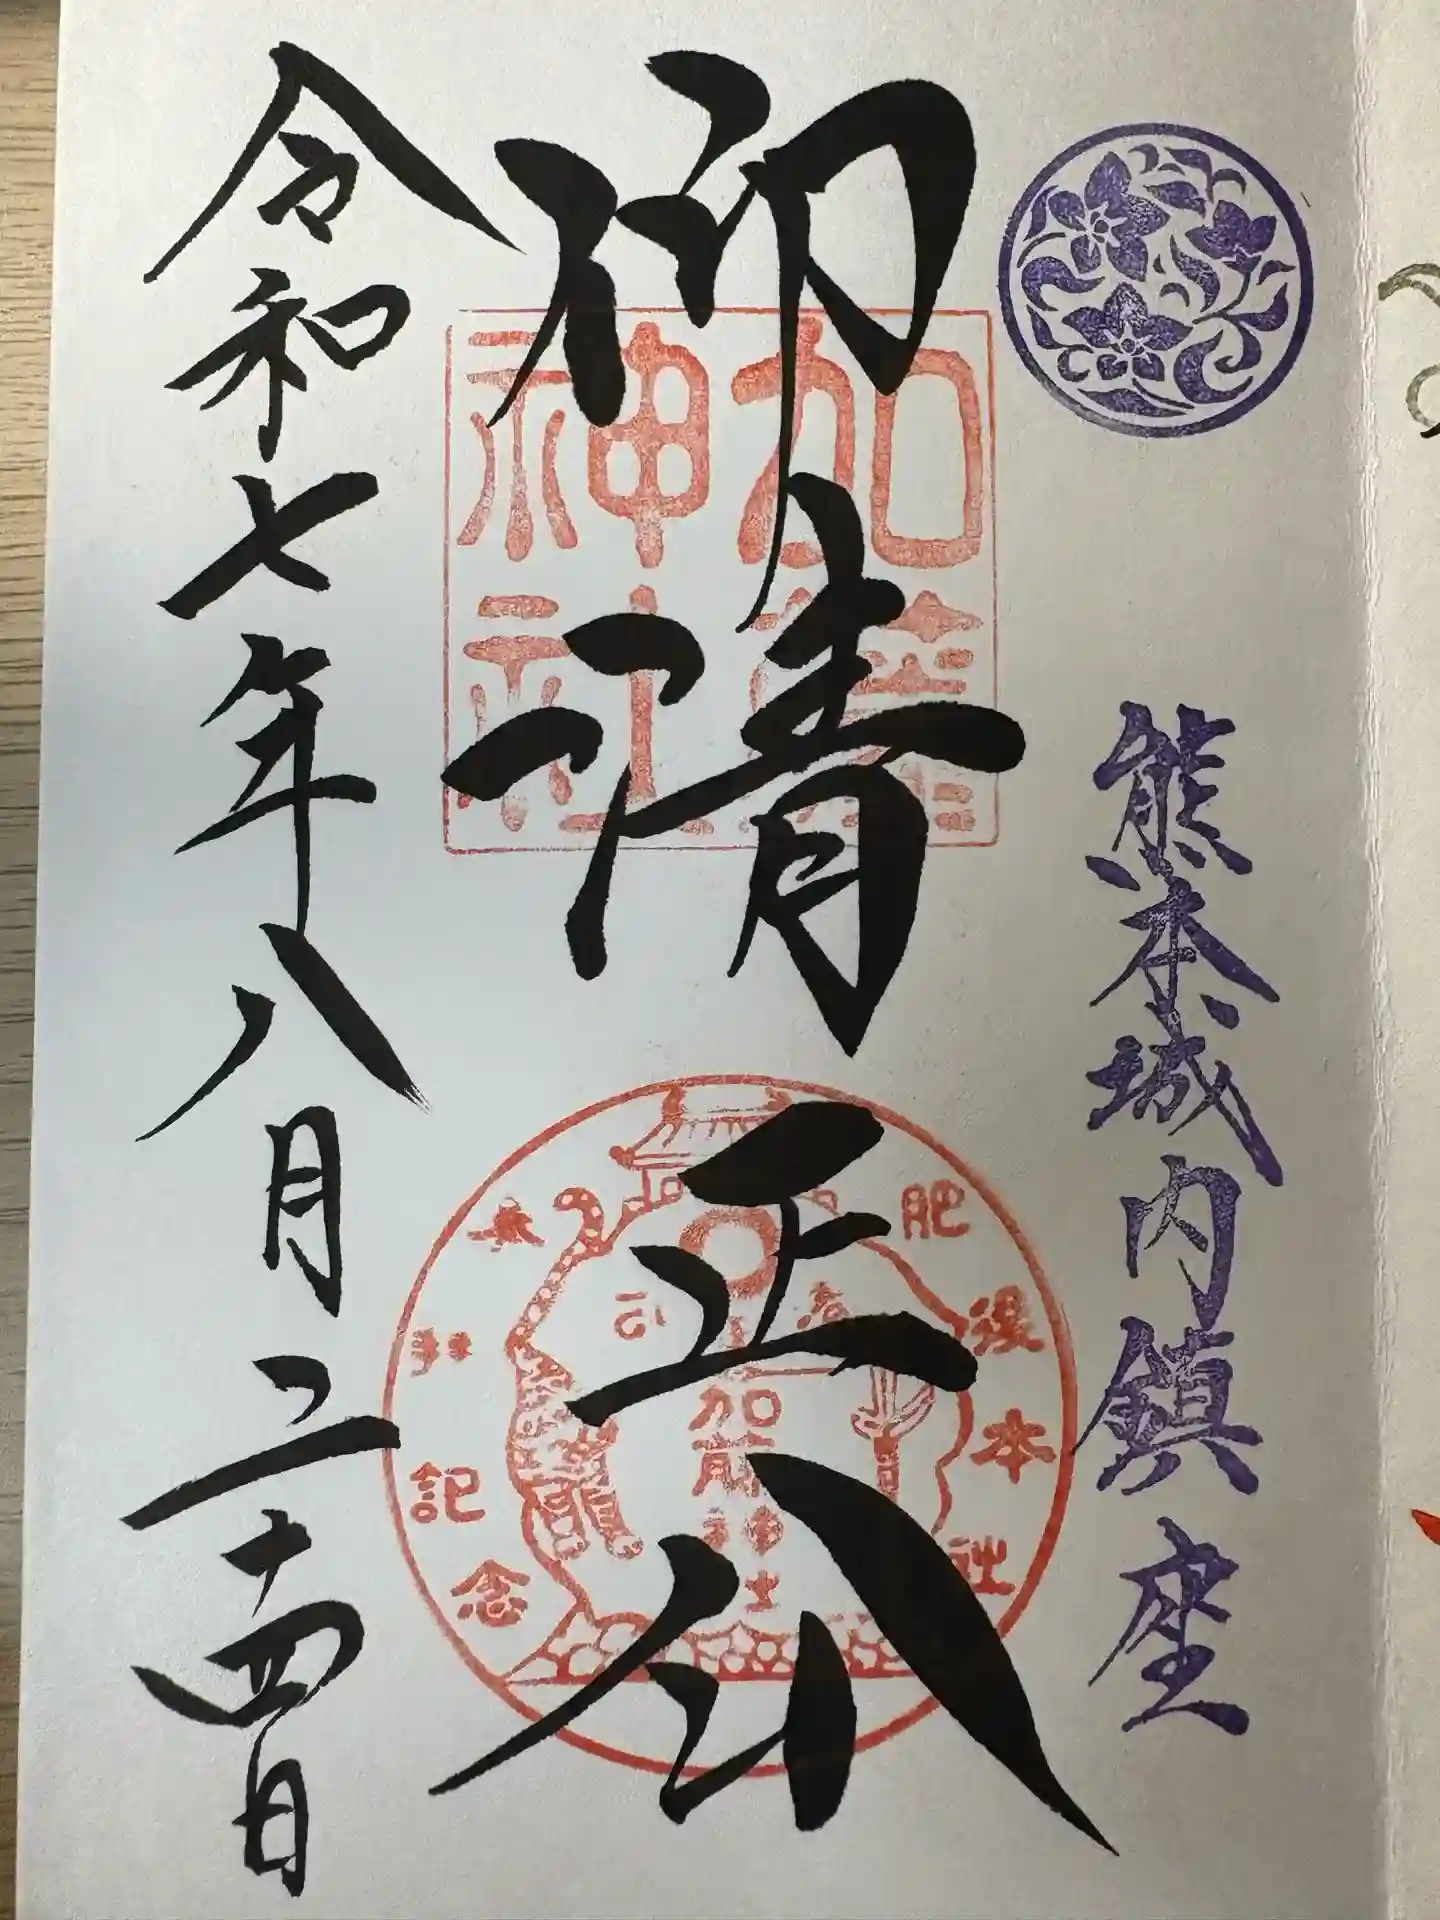 熊本城内鎮座
仰清正公
加藤
神社
肥後本社
参拝記念
加藤神社
令和七年八月二十四日